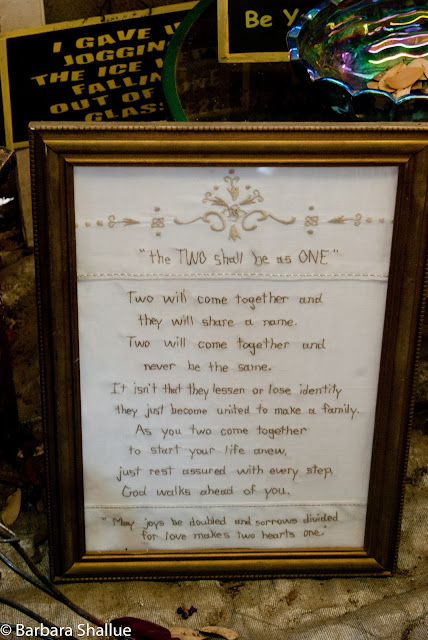 I GAVE U
JOGGIN
THE ICE
FALLIN
OUT OF
GLASS
Be Y
"the TWO shall be as ONE"
Two will come together and
they will share a name.
Two will come together and
never be the same.
It isn't that they lessen or lose identity
they just become united to make a family.
As you two come together
to start your life anew,
just rest assured with every step,
God walks ahead of you.
"May joys be doubled and sorrows divided
for love makes two hearts one."
©Barbara Shallue